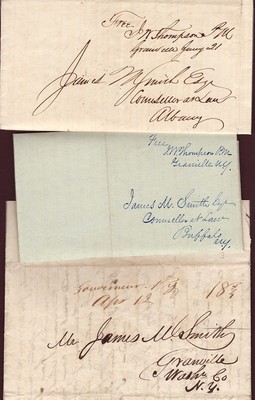 Free
J W Thompson PM
Granville Jany 21
James M Smith Esq
Counsellor at Law
Albany
Free
J.W. Thompson PM
Granville NY.
James M. Smith Esqr
Counseller at Law
Buffalo
NY.
Gouverneur N.Y.
Apr 12
18¾
Mr James M Smith
Granville
Washn Co
N.Y.